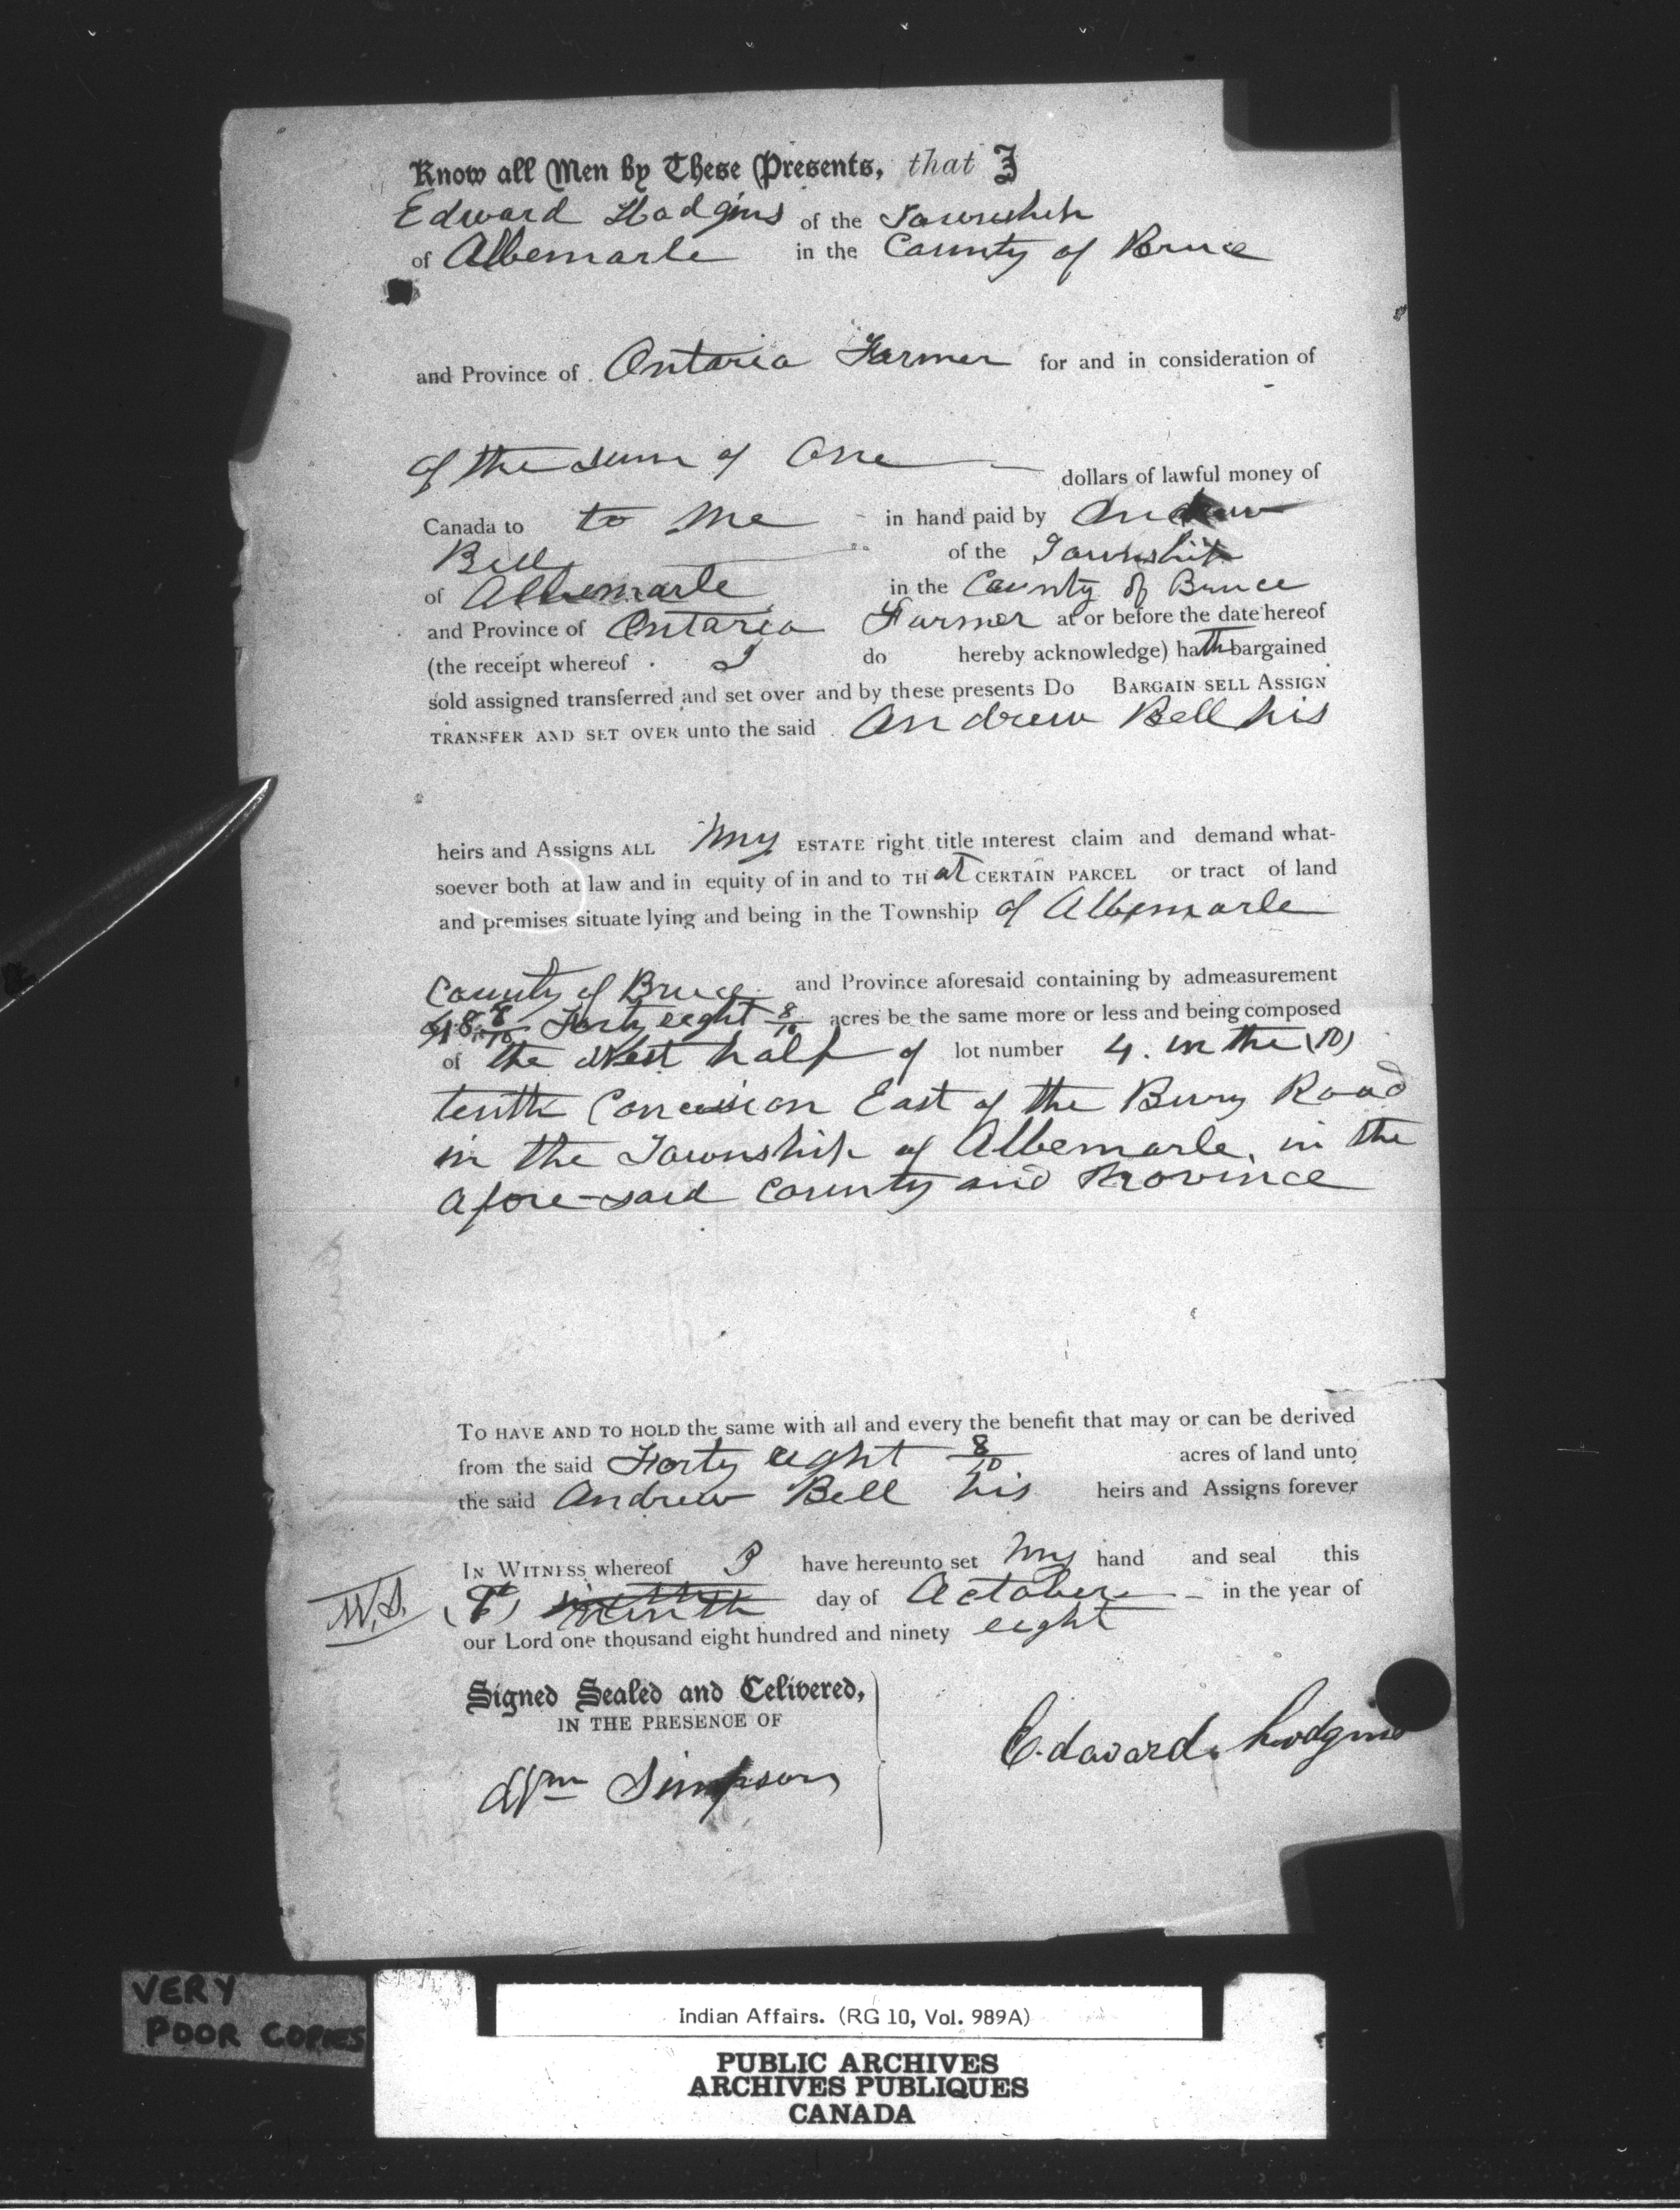 Know all Men by These Presents, that I
Edward Hodgins of the Township
of Albemarle in the County of Bruce
and Province of Ontario Farmer for and in consideration of
of the sum of One dollars of lawful money of
Canada to to me in hand paid by Andrew
Bell of the Township
of Albemarle in the County of Bruce
and Province of Ontario Farmer at or before the date hereof
(the receipt whereof I do hereby acknowledge) hath bargained
sold assigned transferred and set over and by these presents Do BARGAIN SELL ASSIGN
TRANSFER AND SET OVER unto the said Andrew Bell his
heirs and Assigns ALL My ESTATE right title interest claim and demand what-
soever both at law and in equity of in and to THat CERTAIN PARCEL or tract of land
and premises situate lying and being in the Township of Albemarle
County of Bruce and Province aforesaid containing by admeasurement
48 8/10 Forty eight 8/10 acres be the same more or less and being composed
of the West half of lot number 4. in the (10)
tenth Concession East of the Bury Road
in the Township of Albemarle, in the
afore-said County and Province
TO HAVE AND TO HOLD the same with all and every the benefit that may or can be derived
from the said Forty eight 8/10 acres of land unto
the said Andrew Bell his heirs and Assigns forever
IN WITNESS whereof I have hereunto set My hand and seal this
W.S. ninth day of October in the year of
our Lord one thousand eight hundred and ninety eight
Signed Sealed and Celivered,
IN THE PRESENCE OF
Wm Simpson
Edward Hodgins
VERY
POOR COPIES
Indian Affairs. (RG 10, Vol. 989A)
PUBLIC ARCHIVES
ARCHIVES PUBLIQUES
CANADA